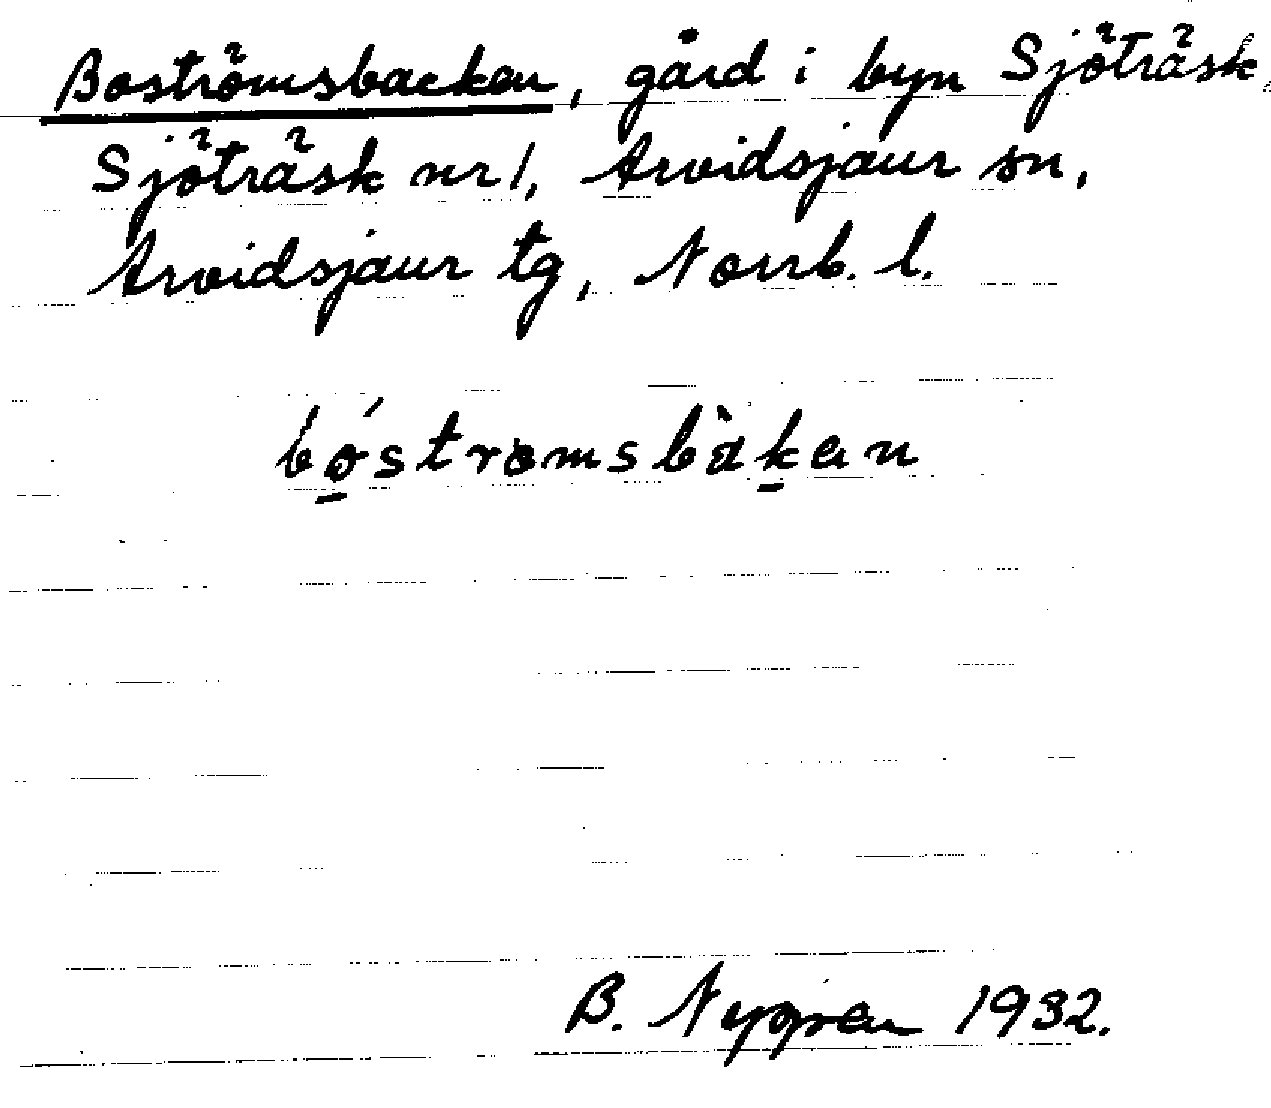 Boströmsbacken, gård i byn Sjöträsk,
Sjöträsk nr 1, Arvidsjaur sn,
Arvidsjaur tg, Norrb. l.
bo̱´strømsbàḵan
B. Nygren 1932.